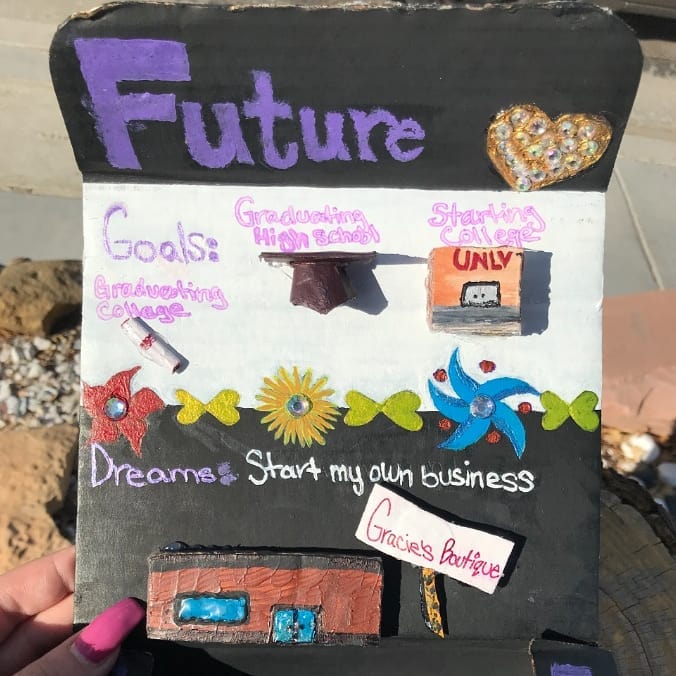 Future
Goals:
Graduating
High school
Starting
College
UNLV
Graduating
Collage
Dreams: Start my own business
Gracie's Boutique